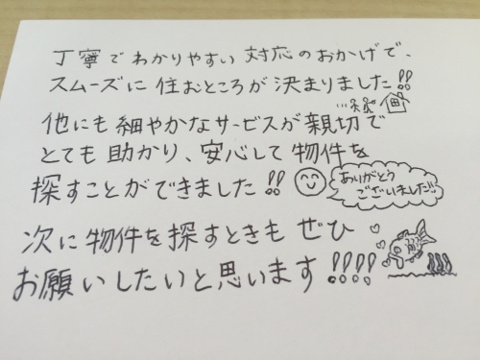 丁寧でわかりやすい対応のおかげで、
スムーズに住むところが決まりました!!
他にも細やかなサービスが親切で
とても助かり、安心して物件を
探すことができました!!
ありがとう
ございました!!
次に物件を探すときもぜひ
お願いしたいと思います!!!!